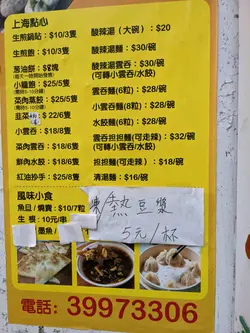 上海點心
生煎鍋貼：$10/3隻
生煎飽：$10/3隻
葱油餅：
小籠飽：$25/5隻
菜肉蒸餃：$25/5隻
韮菜 $22/6隻
小雲吞：$18/8隻
菜肉雲吞：$18/6隻
鮮肉水餃：$18/6隻
紅油抄手：$25/8隻
酸辣湯（大碗）：$20
酸辣湯麵：$30/碗
酸辣湯雲吞：$30/碗
(可轉小雲吞/水餃)
雲吞麵(6粒)：$28/碗
小雲吞麵(8粒)：$28/碗
水餃麵(6粒)：$28/碗
雲吞担担麵(可走辣)：$32/碗
(可轉小雲吞/水餃)
担担麵(可走辣)：$18/碗
清湯麵：$16/碗
風味小食
魚旦/燒賣：$10/7粒
生根：10元/串
墨魚/
凍/熱豆漿
5元/杯
電話：39973306